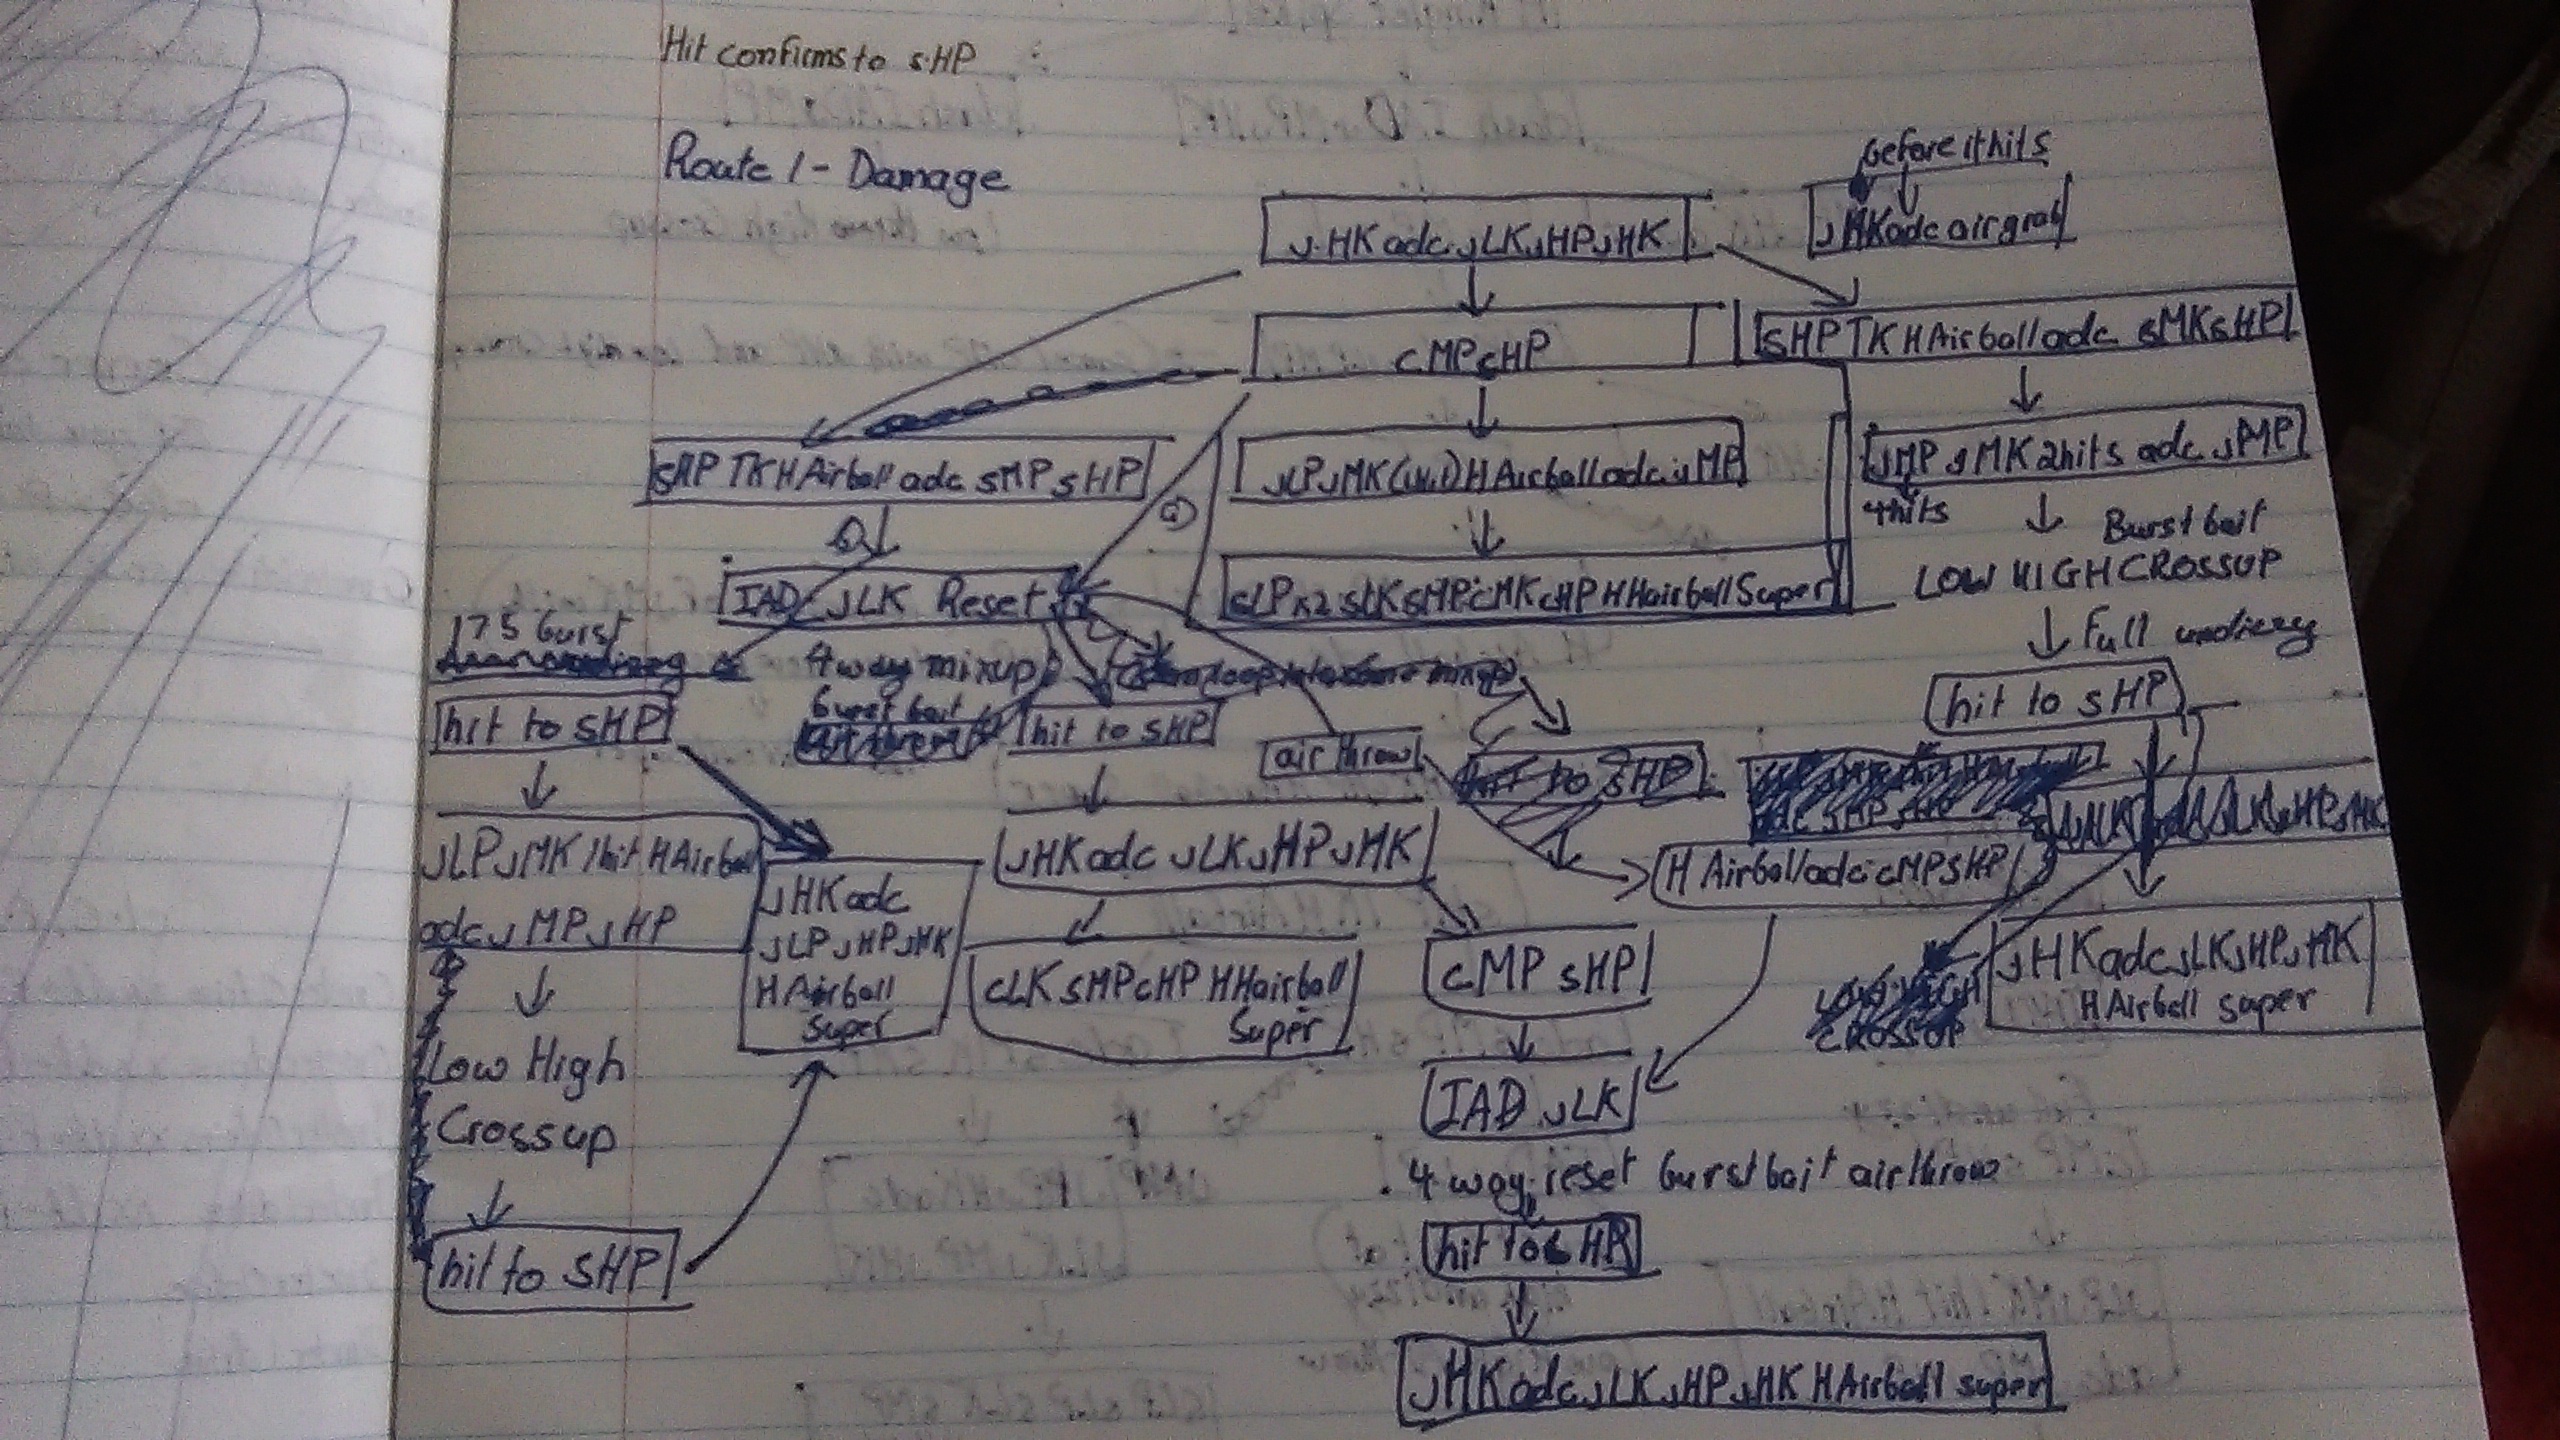 Hit confirms to s.HP
Route 1 - Damage
before it hits
j.HK adc jLK jHP jHK
jHK adc air grab
cMP cHP
sHP TK H Airball adc sMK sHP
sHP TK H Airball adc sMP sHP
jLP jMK (1hit) H Airball adc jMP
jMP jMK 2hits adc jMP
4hits
Burst bait
LOW HIGH CROSSUP
IAD jLK Reset
cLP x2 sLK sMP cMK cHP H Hairball Super
Full undizzy
175 burst
4 way mixup
burst bait
hit to sHP
hit to sHP
air throw
hit to sHP
hit to sHP
jLP jMK 1hit H Airball
adc jMP jHP
jHK adc
jLP jHP jHK
H Airball
Super
jHK adc jLK jHP jHK
H Airball adc cMP sHP
cLK sMP cHP H Hairball
Super
cMP sHP
jHK adc jLK jHP jHK
H Airball super
CROSSUP
Low High
Crossup
IAD jLK
4 way reset burst bait air throw
hit to sHP
hit to sHP
jHK adc jLK jHP jHK H Airball super